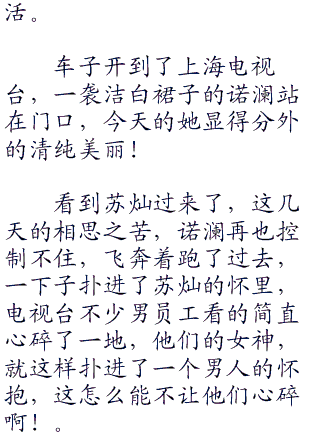 活。
车子开到了上海电视
台，一袭洁白裙子的诺澜站
在门口，今天的她显得分外
的清纯美丽！
看到苏灿过来了，这几
天的相思之苦，诺澜再也控
制不住，飞奔着跑了过去，
一下子扑进了苏灿的怀里，
电视台不少男员工看的简直
心碎了一地，他们的女神，
就这样扑进了一个男人的怀
抱，这怎么能不让他们心碎
啊！。